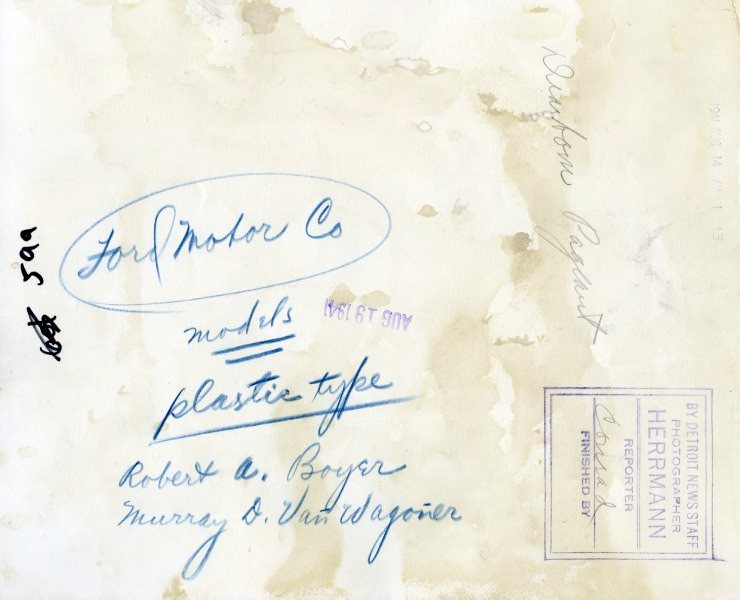 Ford Motor Co
models
plastic type
Robert A. Boyer
Murray D. Van Wagoner
AUG 19 1941
599
Dearborn Pageant
1941 AUG 14
BY DETROIT NEWS STAFF
PHOTOGRAPHER
HERRMANN
REPORTER
Conrad
FINISHED BY